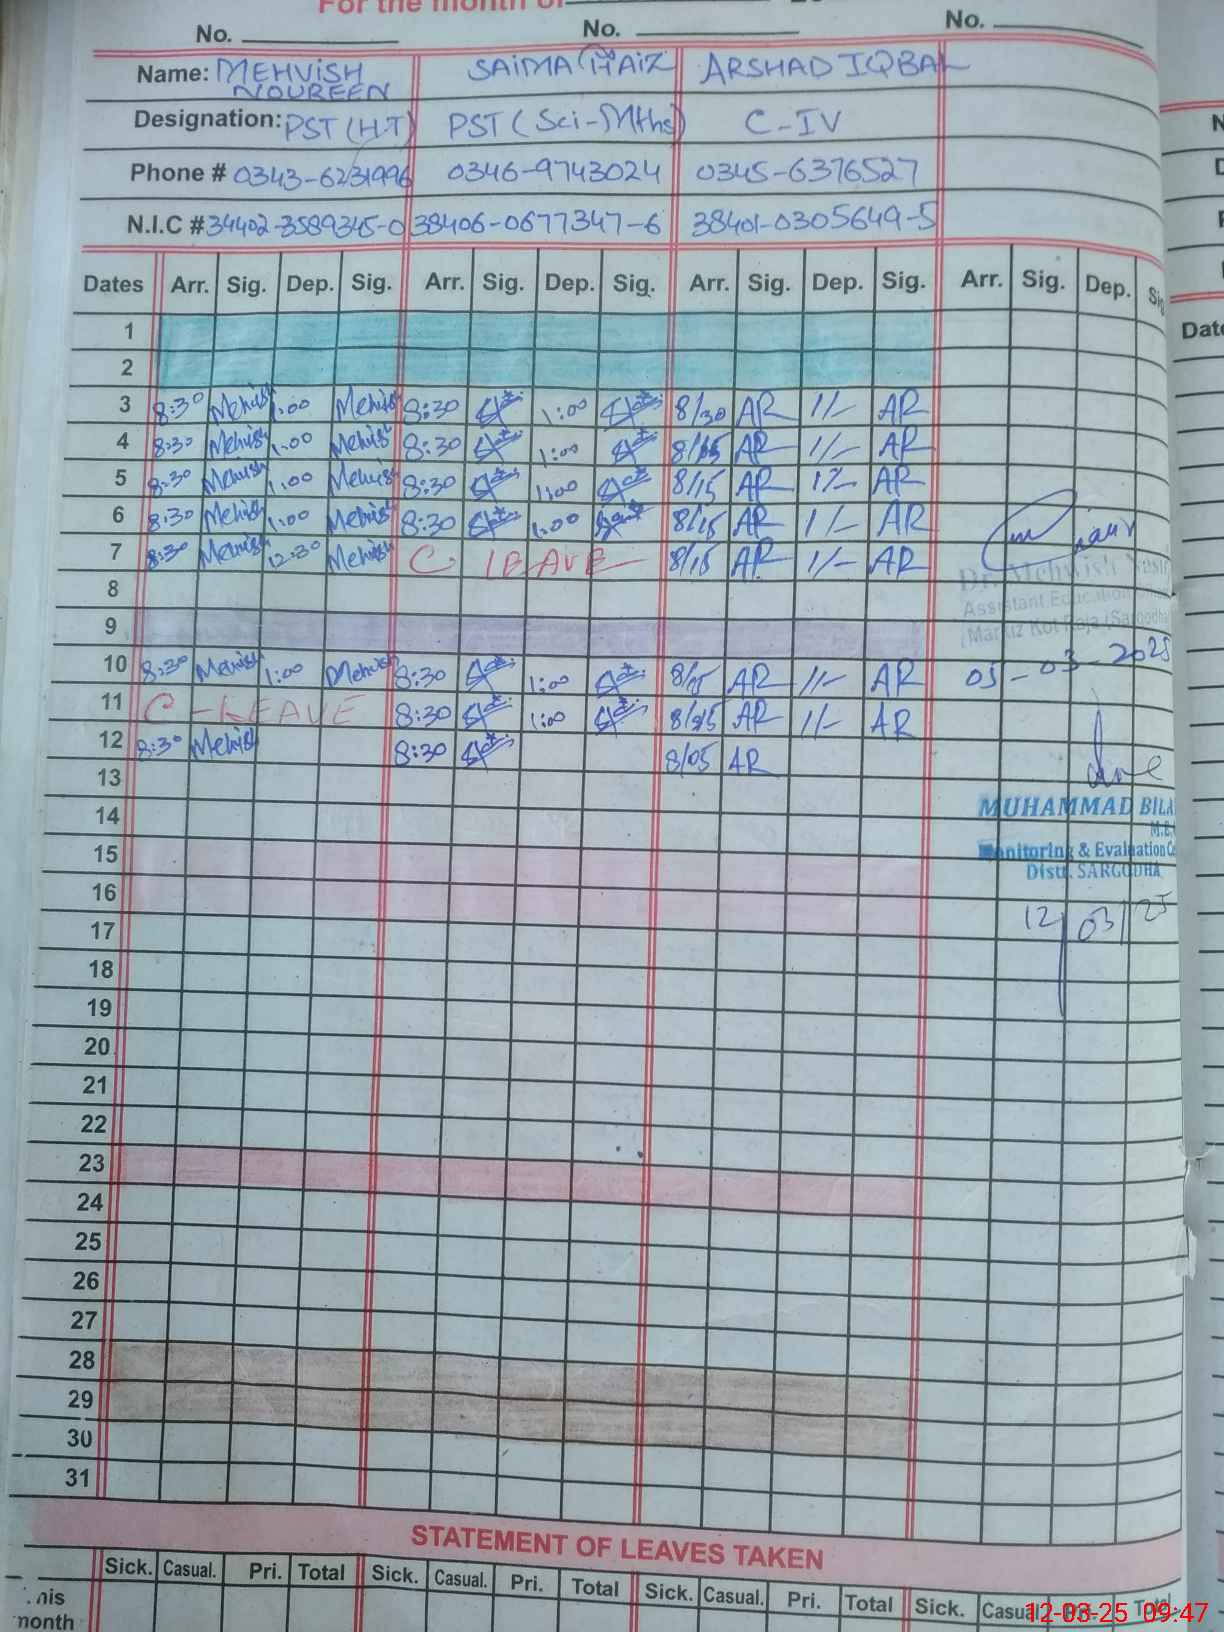 For the month of
No. No. No.
Name: MEHVISH NOUREEN SAIMA ARSHAD IQBAL
Designation: PST (H.T) PST (Sci-Mths) C-IV
Phone # 0343-6231996 0346-9743024 0345-6376527
N.I.C # 34402-3589345-0 38406-0677347-6 38401-0305649-5
Dates Arr. Sig. Dep. Sig. Arr. Sig. Dep. Sig. Arr. Sig. Dep. Sig. Arr. Sig. Dep. Sig
Date
1
2
3 8:30 Mehvish 1:00 Mehvish 8:30 1:00 8/30 AR 1/- AR
4 8:30 Mehvish 1:00 Mehvish 8:30 1:00 AR 1/- AR
5 8:30 Mehvish 1:00 Mehvish 8:30 1:00 8/15 AR 1/- AR
6 8:30 Mehvish 1:00 Mehvish 8:30 1:00 8/15 AR 1/- AR
7 8:30 Mehvish 12:30 Mehvish C. LEAVE 8/15 AR 1/- AR
Dr. Mehwish Nasir
8
Assistant Education
9
Markiz Kot Raja (Sargodha
10 8:30 Mehvish 1:00 Mehvish 8:30 1:00 8/15 AR 1/- AR
05-03-2025
11 C-LEAVE 8:30 1:00 AR 1/- AR
12 8:30 Mehvish 8:30 8/05 AR
13
MUHAMMAD BILA
14
Monitoring & Evaluation
15
Distt. SARGODHA
16
12/03/25
17
18
19
20
21
22
23
24
25
26
27
28
29
30
31
STATEMENT OF LEAVES TAKEN
Sick. Casual. Pri. Total Sick. Casual. Pri. Total Sick. Casual. Pri. Total Sick. Casual. Pri. Total
This month
12-03-25 09:47